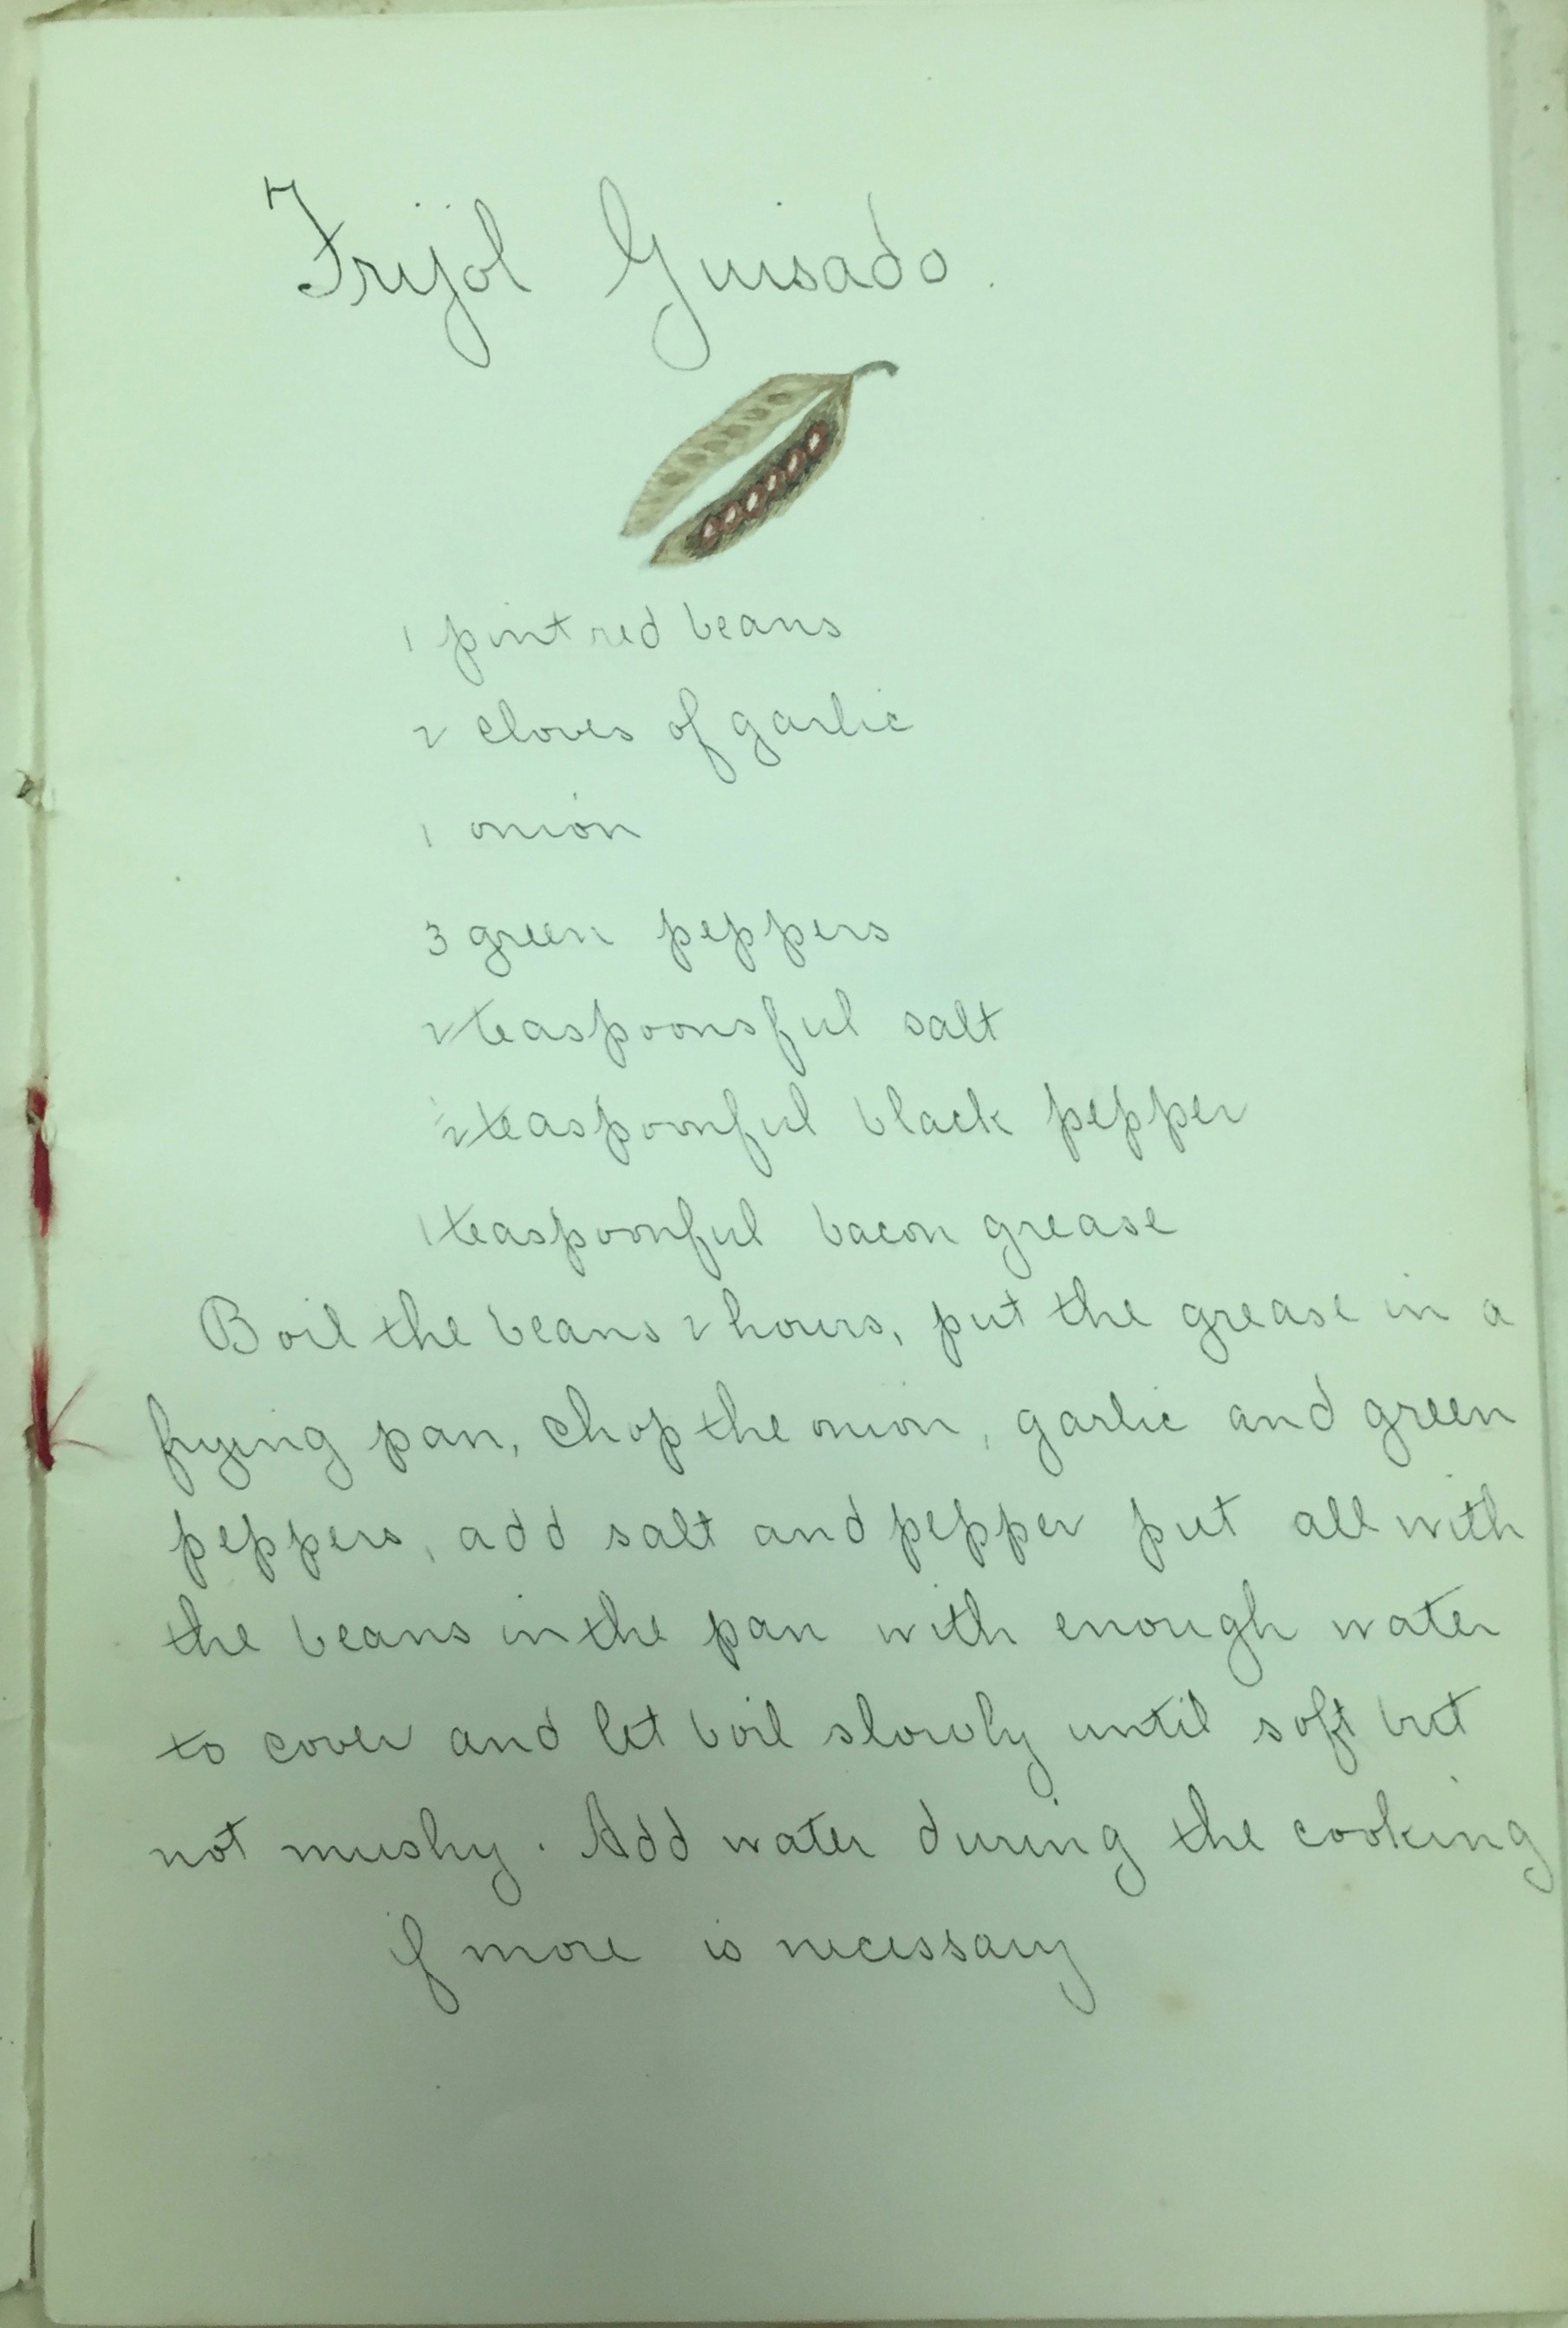 Frijol Guisado.
1 pint red beans
2 cloves of garlic
1 onion
3 green peppers
2 teaspoonsful salt
½ teaspoonful black pepper
1 teaspoonful bacon grease
Boil the beans 2 hours, put the grease in a
frying pan, chop the onion, garlic and green
peppers, add salt and pepper put all with
the beans in the pan with enough water
to cover and let boil slowly until soft but
not mushy. Add water during the cooking
if more is necessary